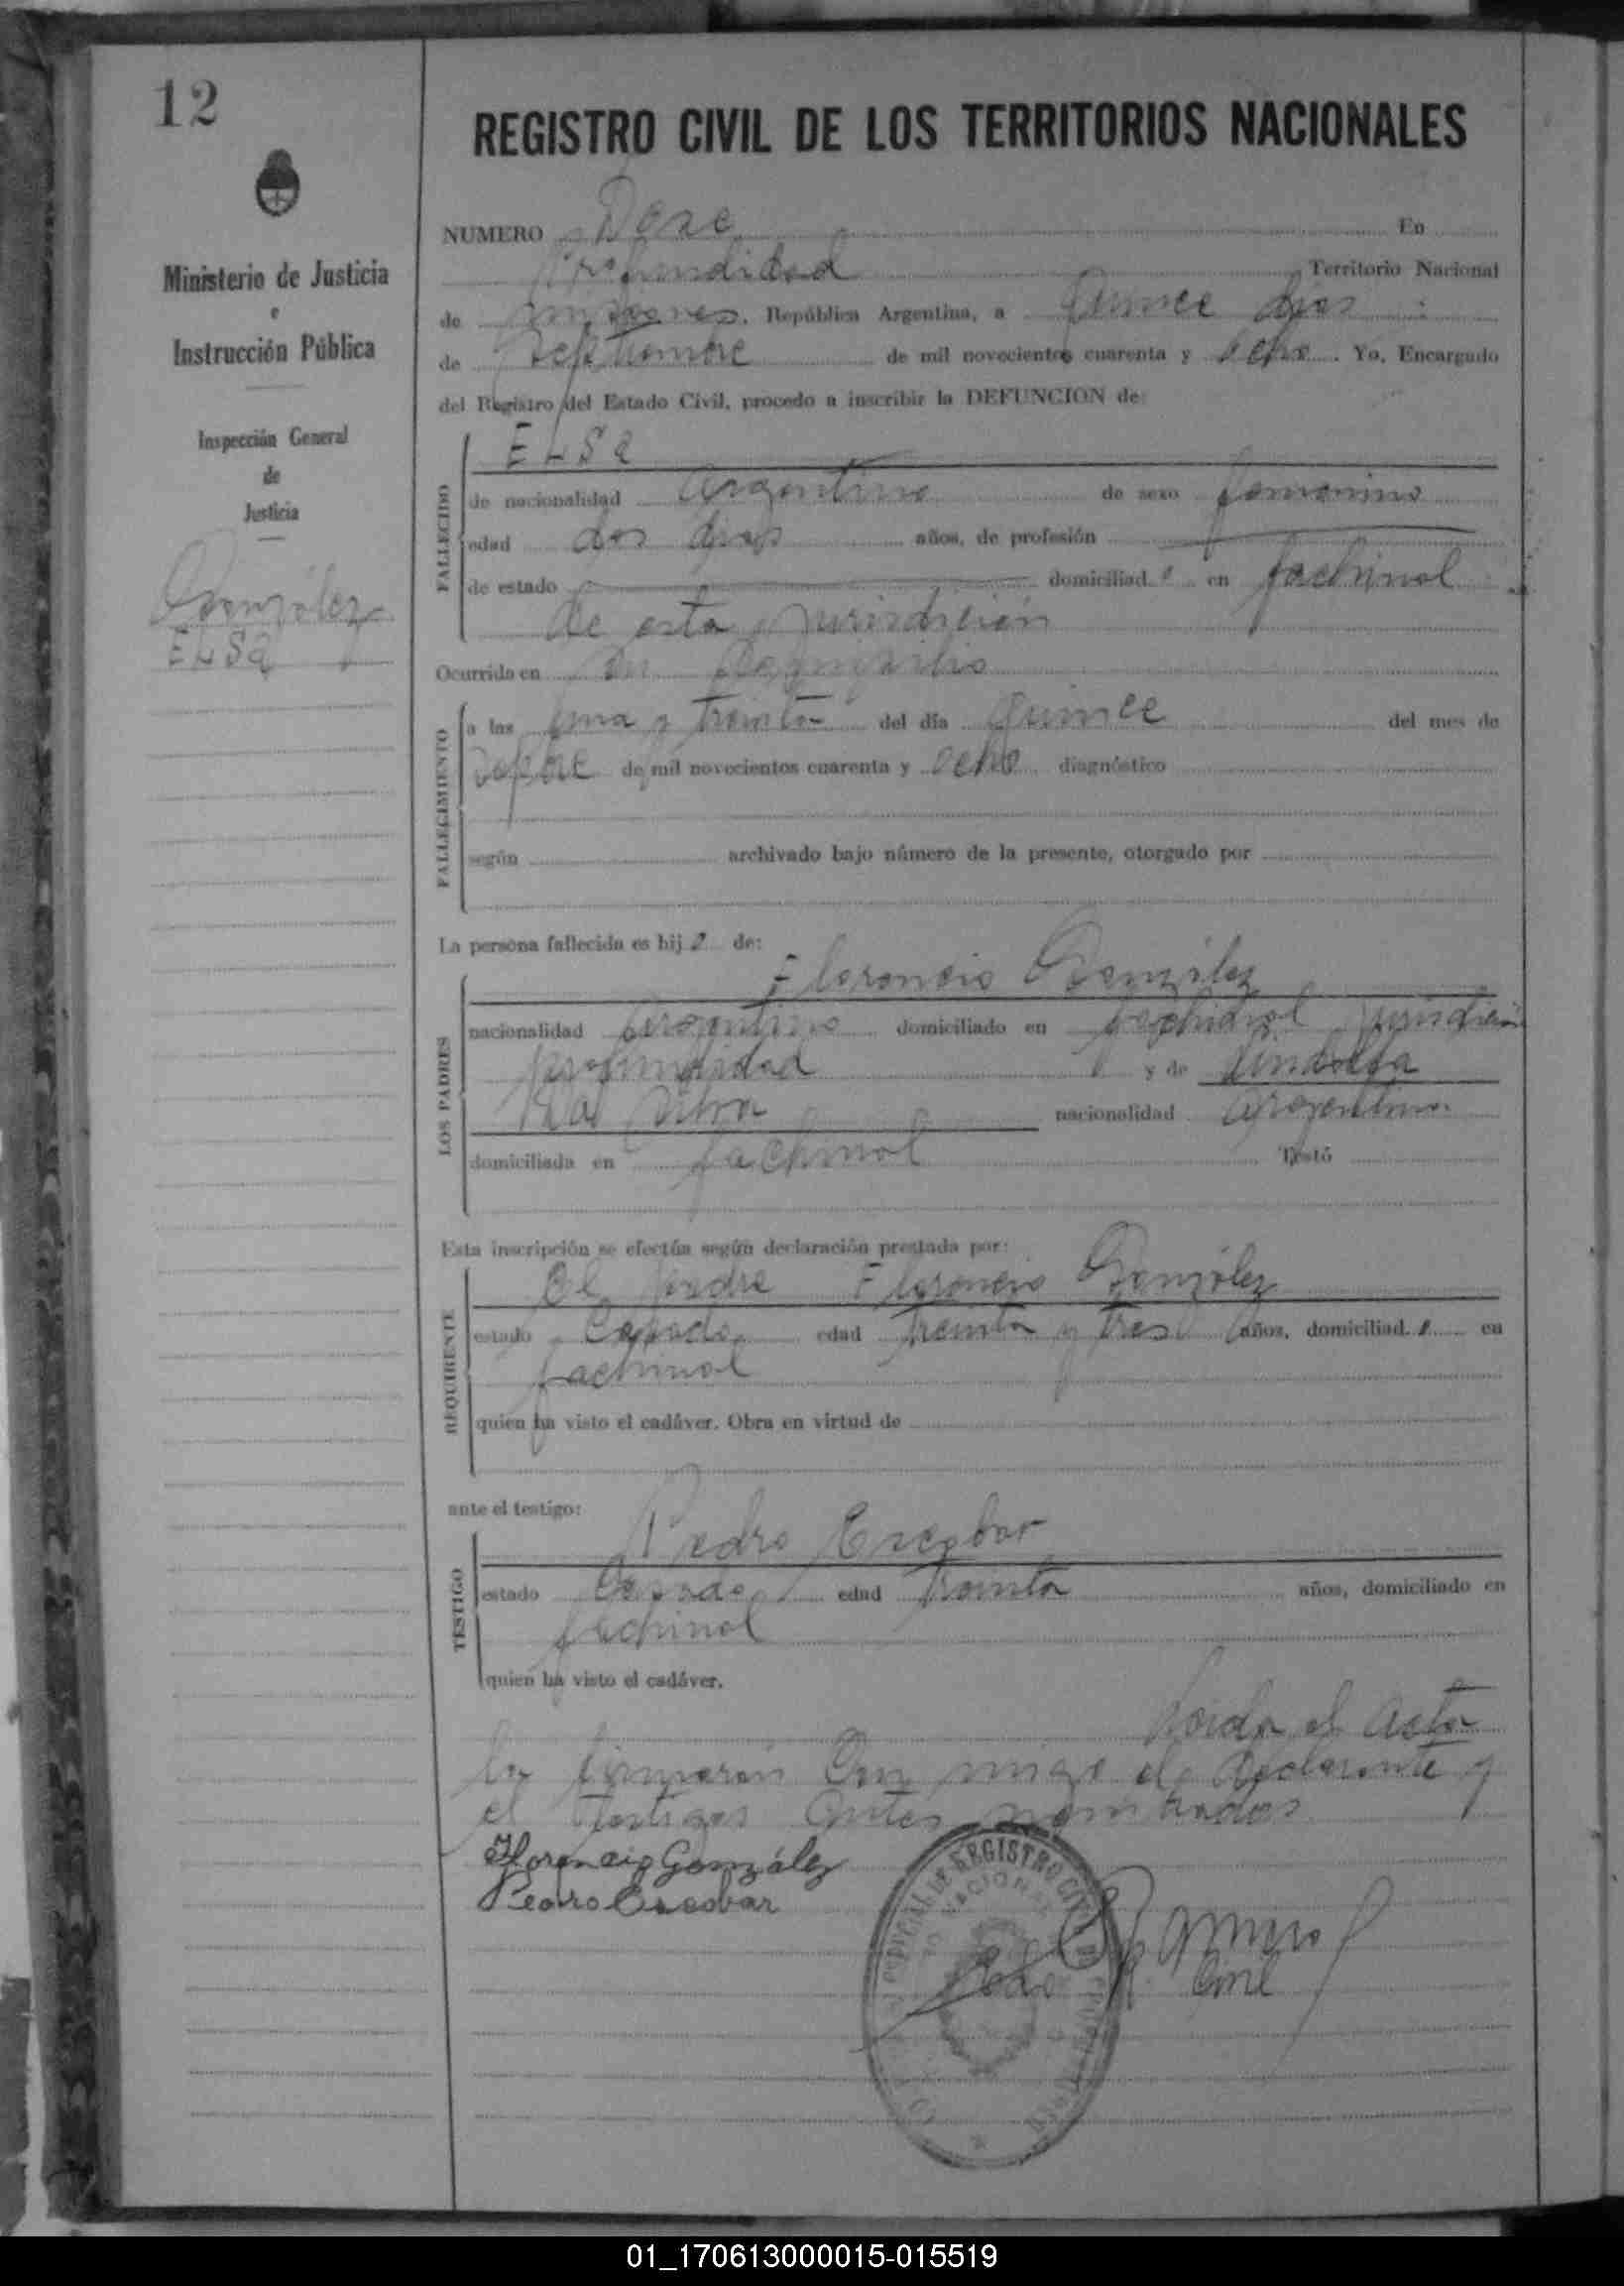 12
REGISTRO CIVIL DE LOS TERRITORIOS NACIONALES
Ministerio de Justicia
e
Instrucción Pública
Inspección General
de
Justicia
González
ELSa
NUMERO Doce En
Profundidad Territorio Nacional
de Misiones, República Argentina, a quince dias
de Septiembre de mil novecientos cuarenta y ocho. Yo, Encargado
del Registro del Estado Civil, procedo a inscribir la DEFUNCION de:
FALLECIDO
ELSa
de nacionalidad Argentina de sexo femenino
edad dos dias años, de profesión
de estado domiciliad a en fachinal
de esta jurisdicion
Ocurrida en su Domicilio
FALLECIMIENTO
a las una y treinta del día quince del mes de
Sepbre de mil novecientos cuarenta y ocho diagnóstico
según archivado bajo número de la presente, otorgado por
La persona fallecida es hij a de:
LOS PADRES
Florencio González
nacionalidad Argentino domiciliado en fachinal jurisdicion
profundidad y de Lindolfa
Da Silva nacionalidad argentina
domiciliada en fachinal Testó
Esta inscripción se efectúa según declaración prestada por:
REQUIRENTE
el padre Florencio González
estado Casado edad treinta y tres años, domiciliad o en
fachinal
quien ha visto el cadáver. Obra en virtud de
ante el testigo:
TESTIGO
Pedro Escobar
estado Casado edad treinta años, domiciliado en
fachinal
quien ha visto el cadáver.
Leida el acta
la firmaron Con migo el declarante y
el testigos antes nombrados
Florencio González
Pedro Escobar
REGISTRO CIVIL
Civil
01_170613000015-015519